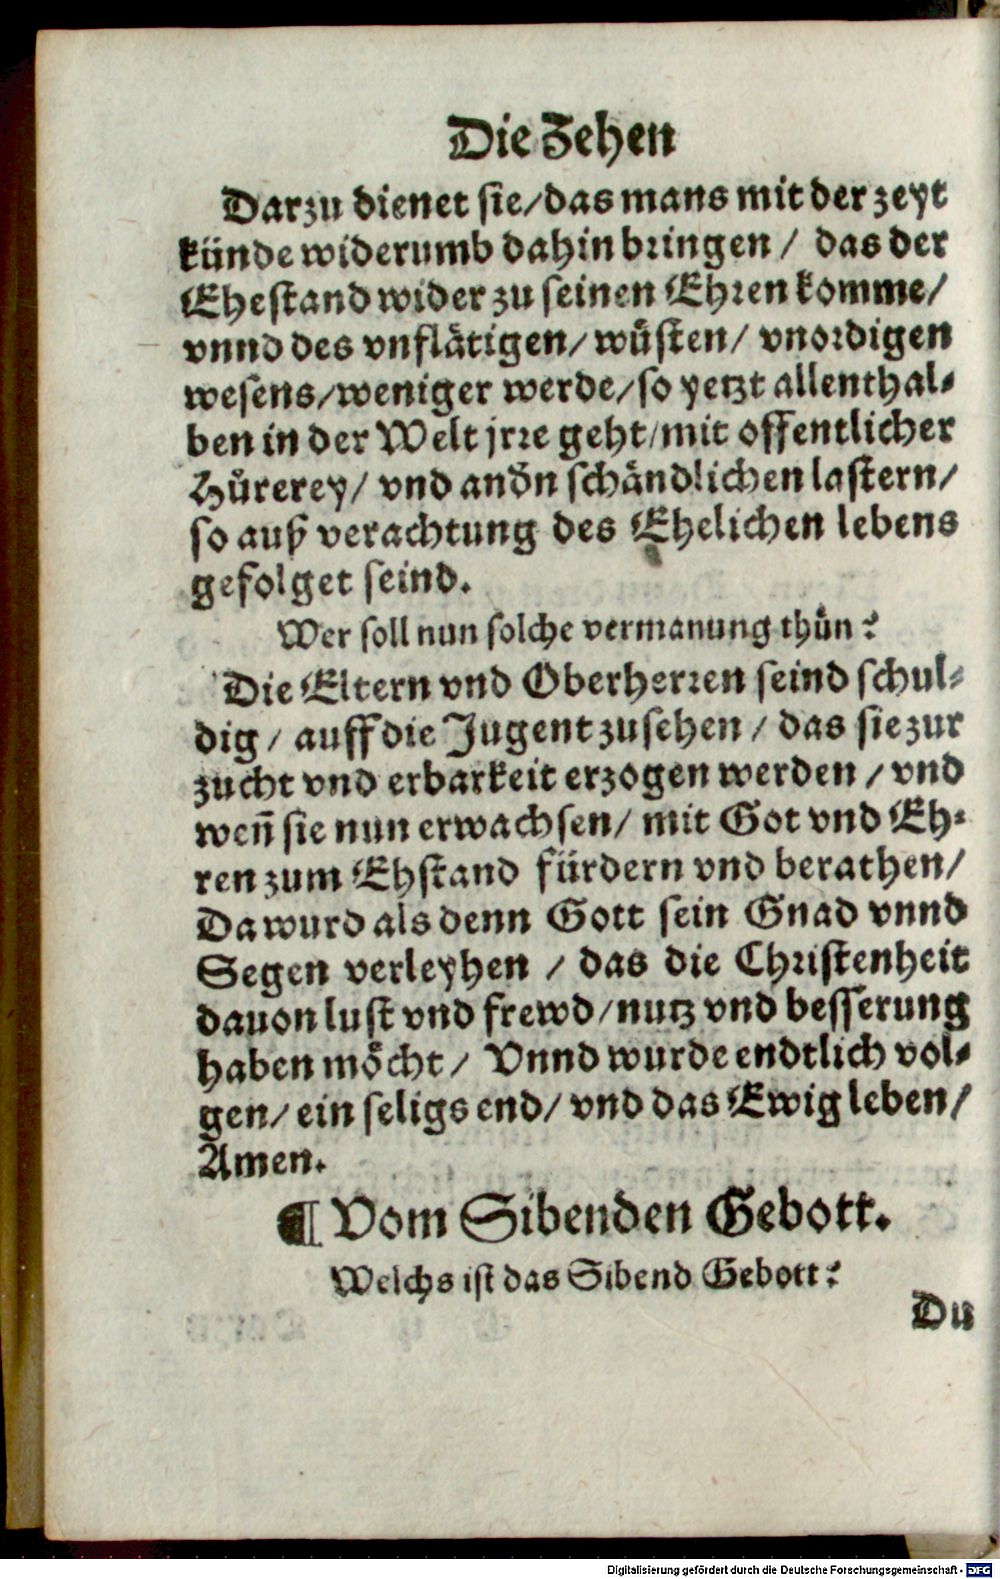 Die Zehen
Darzu dienet sie/das mans mit der zeyt
künde widerumb dahin bringen / das der
Ehestand wider zu seinen Ehren komme/
vnnd des vnflätigen/ wüsten/ vnordigen
wesens/weniger werde/so yetzt allenthal-
ben in der Welt jrre geht/mit offentlicher
Hůrerey/ vnd andn̄ schändlichen lastern/
so auß verachtung des Ehelichen lebens
gefolget seind.
Wer soll nun solche vermanung thůn?
Die Eltern vnd Oberherren seind schul-
dig / auff die Jugent zusehen / das sie zur
zucht vnd erbarkeit erzogen werden / vnd
wen̄ sie nun erwachsen/ mit Got vnd Eh-
ren zum Ehstand fürdern vnd berathen/
Da wurd als denn Gott sein Gnad vnnd
Segen verleyhen / das die Christenheit
dauon lust vnd frewd/nutz vnd besserung
haben möcht / Vnnd wurde endtlich vol-
gen/ ein seligs end/ vnd das Ewig leben/
Amen.
¶ Vom Sibenden Gebott.
Welchs ist das Sibend Gebott?
Du
Digitalisierung gefördert durch die Deutsche Forschungsgemeinschaft - DFG